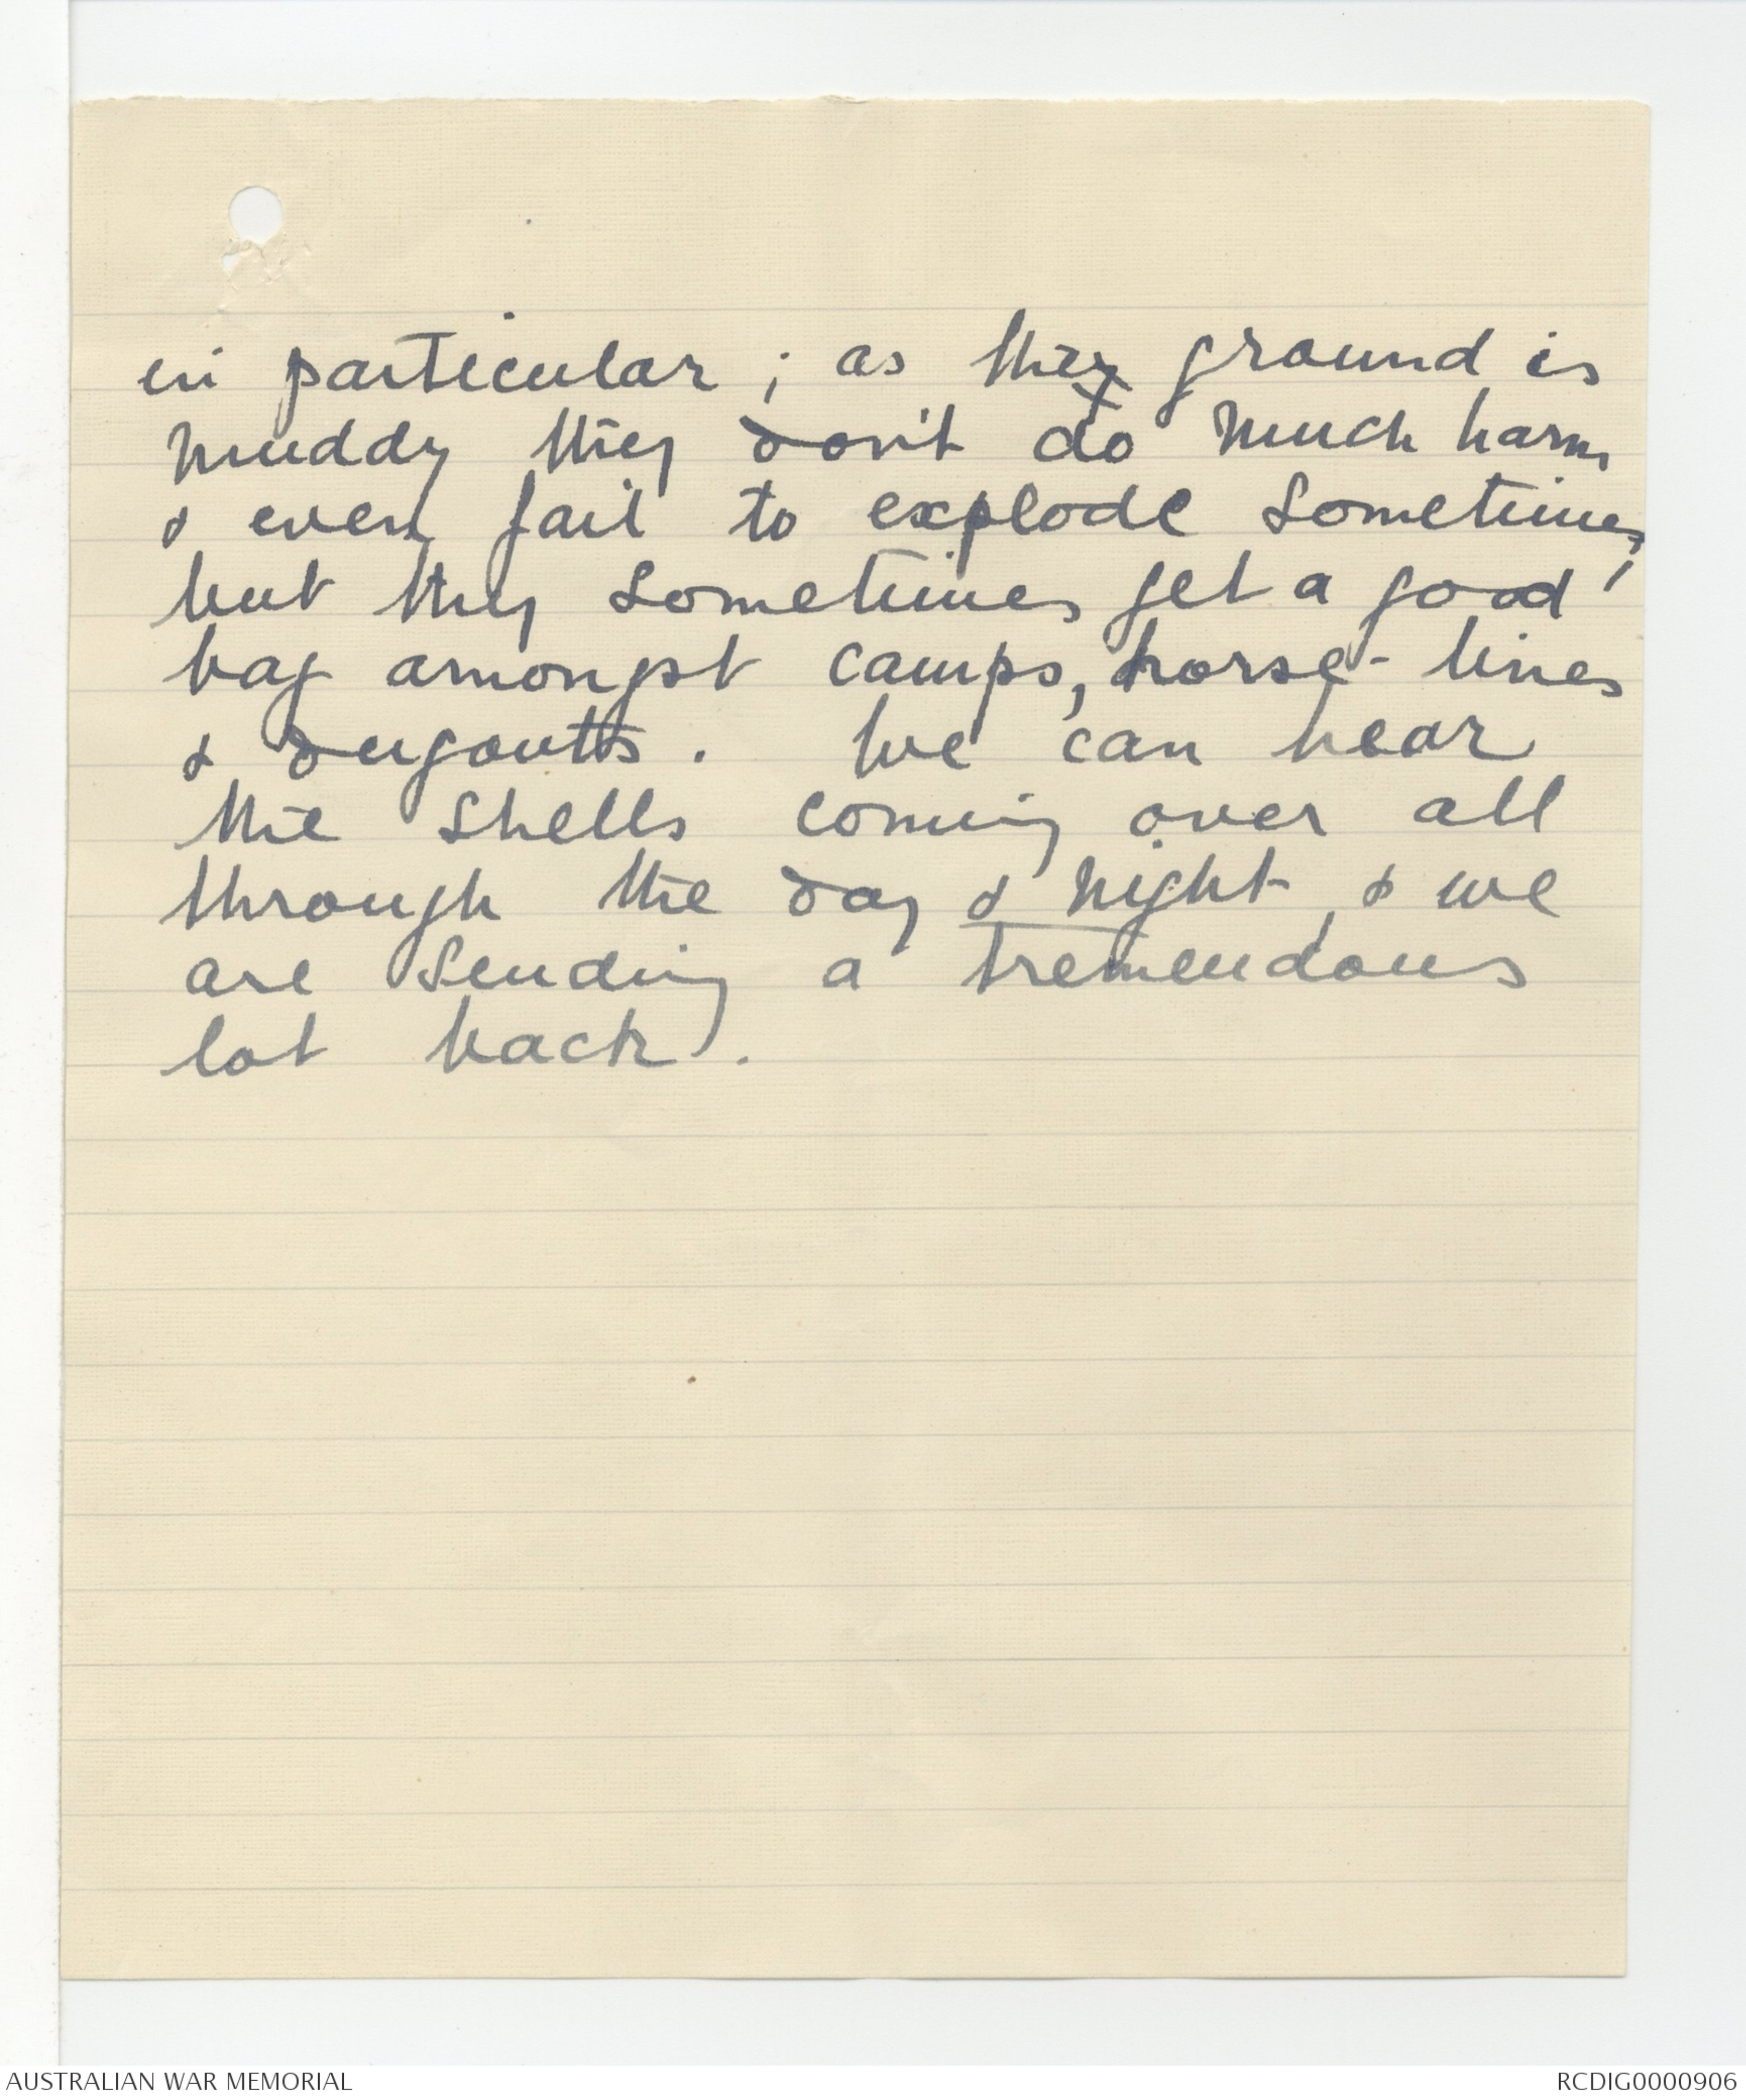 in particular ; as the ground is
muddy they don't do much harm
& even fail to explode sometimes,
but they sometimes get a good
bag amongst camps, horse-lines
& dugouts. We can hear
the shells coming over all
through the day & night, & we
are sending a tremendous
lot back.
AUSTRALIAN WAR MEMORIAL
RCDIG0000906